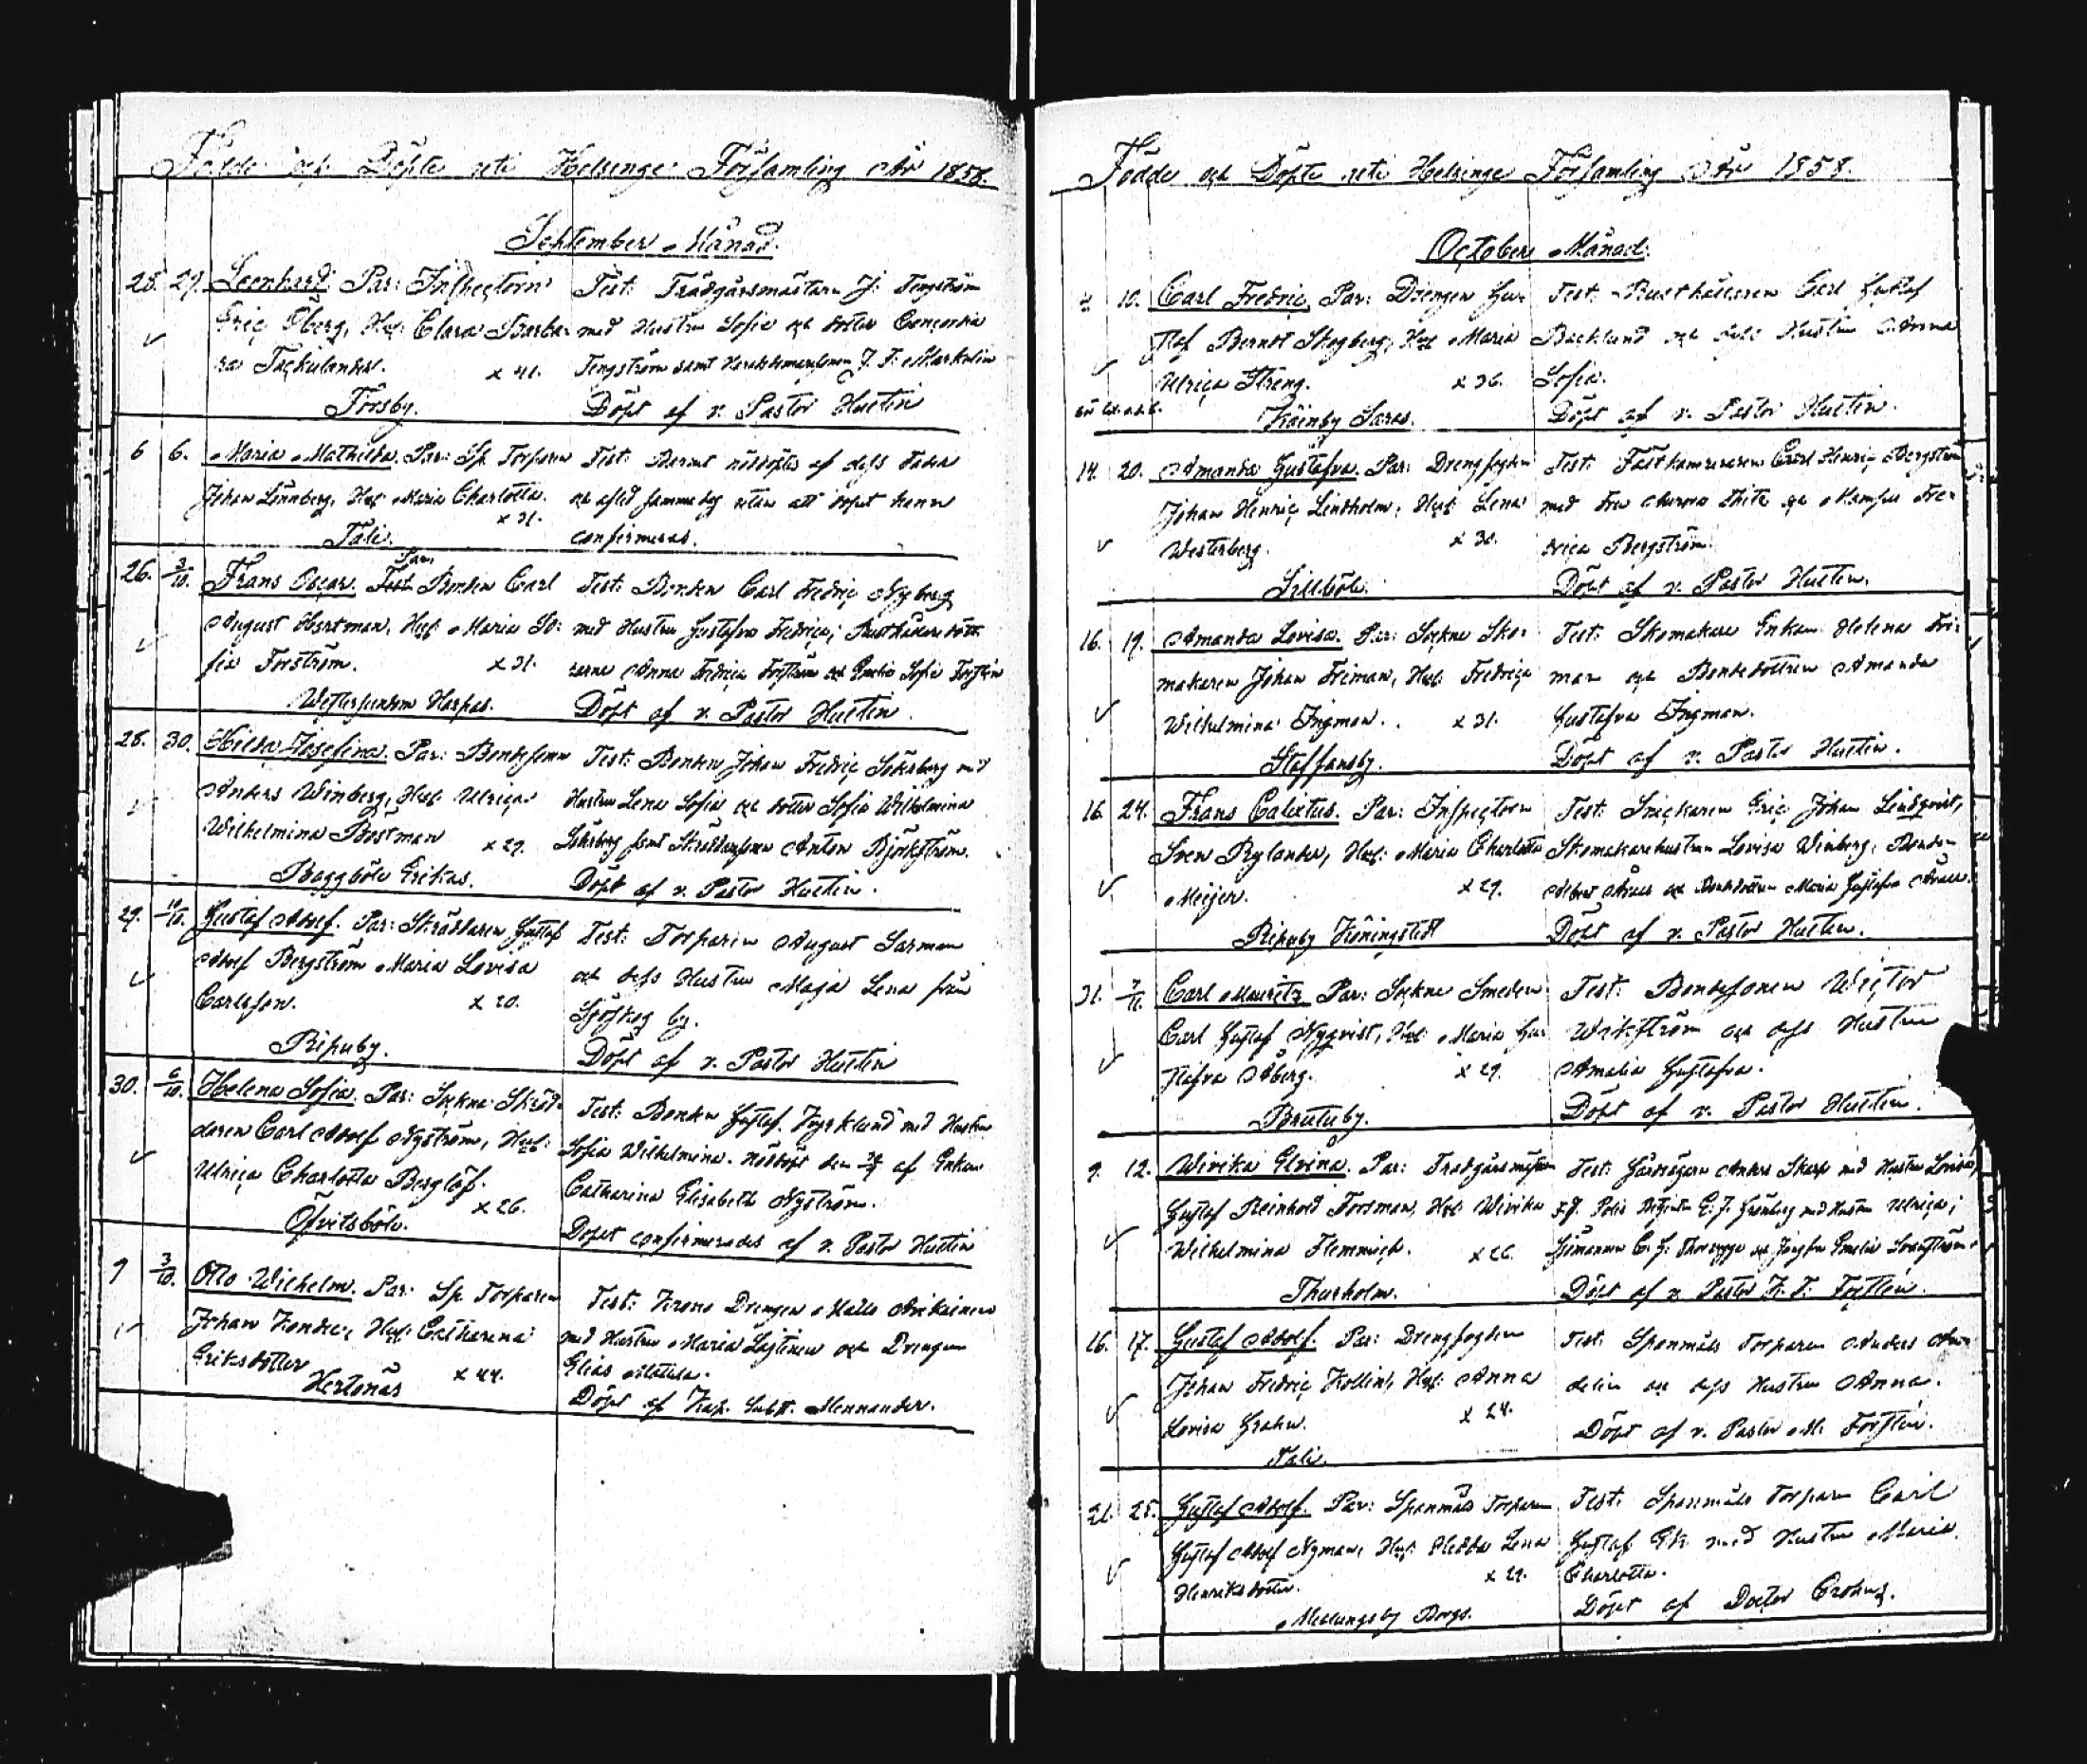 Födde och Döpte uti Helsinge Församling År 1858.
September Månad.
28. 29. Leonhard. Par: Inspectorn
Eric Öberg, Hust: Clara Barba-
ra Tackulander. x 41.
Forsby.
Test: Trädgårdsmästaren J. Tengström
med Hustru Sofia och dotter Concordia
Tengström samt J. F. Markelin
Döpt af v. Pastor Hustin
6 6. Maria Mathilda. Par: Sp. Torparen
Johan Lönnberg, Hust: Maria Charlotta.
x 31.
Tali.
Test: Barnet nöddöptes af dess fader
och afled samma dag utan att dopet hann
confirmeras.
26. 3/10. Frans Oscar. Test Par: Bonden Carl
August Hertman, Hust: Maria So-
fia Forström. x 31.
Westersundom Harpas.
Test: Bonden Carl Fredric Nyberg
med Hustru Gustafva Fredrica; Rusthållaredött-
rarne Anna Fredrica Forström och Emelie Sofie Forström
Döpt af v. Pastor Hustin.
28. 30. Hilda Josefina. Par: Bondesonen
Anders Winberg, Hust: Ulrica
Wilhelmina Boström x 29.
Baggböle Erikas.
Test: Bonden Johan Fredric Söderberg med
Hustru Lena Sofia och dotter Sofia Wilhelmina
Söderberg samt Skräddaresonen Anton Björkström.
Döpt af v. Pastor Hustin.
29. 10/10. Gustaf Adolf. Par: Skräddaren Gustaf
Adolf Bergström Maria Lovisa
Carlsson. x 20.
Ripuby.
Test: Torparen August Sarman
och dess Hustru Maja Lena från
Sjöskog by.
Döpt af v. Pastor Hustin
30. 6/10. Helena Sofia. Par: Sockne Skräd-
daren Carl Adolf Nyström, Hust:
Ulrica Charlotta Berglöf.
x 26.
Öfvitsböle.
Test: Bonden Gustaf Kyrklund med Hustru
Sofia Wilhelmina. Nöddöpt den af Enkan
Catharina Elisabeth Nyström.
Dopet confirmerades af v. Pastor Hustin
9 3/10. Otto Wilhelm. Par: Sp. Torparen
Johan Hust: Catharina
Eriksdotter x 44.
Hertonäs
Test: Krono Drengen Matts
med Hustru Maria och Drengen
Elias Mattila.
Döpt af Kap. Subst. Mennander.
Födde och Döpte uti Helsinge Församling År 1858.
October Månad.
4 10. Carl Fredric. Par: Drengen Gu-
staf Berndt Skogberg, Hust: Maria
Ulrica Streng. x 36.
Kårby Saras.
Test: Rusthållaren Carl Gustaf
Backlund och dess Hustru Anna
Sofia.
Döpt af v. Pastor Hustin.
14. 20. Amanda Gustafva. Par: Drengfogden
Johan Henric Lindholm, Hust: Lena
Westerberg. x 30.
Sillböle.
Test: Fältkamreraren Carl Henric Bergström
med Fru och Mamsell Fre-
drica Bergström.
Döpt af v. Pastor Hustin.
16. 19. Amanda Lovisa. Par: Sockne Sko-
makaren Johan Friman, Hust: Fredrica
Wilhelmina Ingman. x 31.
Staffansby.
Test: Skomakare Enkan Helena Fri-
man och Bondedottren Amanda
Gustafva Ingman.
Döpt af v. Pastor Hustin.
16. 24. Frans Calixtus. Par: Inspectorn
Sven Rylander, Hust: Maria Charlotta
Meijer. x 29.
Ripuby Köningstedt
Test: Snickaren Eric Johan Lindqvist,
Skomakarehustrun Lovisa Winberg, Bonden
och Bondedottren Maria Gustafva
Döpt af v. Pastor Hustin.
31. 7/11. Carl Mauritz. Par: Sockne Smeden
Carl Gustaf Nyqvist, Hust: Maria Gu-
stafva Åberg. x 29.
Brutuby.
Test: Bondesonen Wictor
Wikström och dess Hustru
Amalia Gustafva.
Döpt af v. Pastor Hustin.
9. 12. Wivika Elvina. Par: Trädgårdsmästaren
Gustaf Reinhold Forsman, Hust: Wivika
Wilhelmina Flemmich. x 26.
Thurholm.
Test: Gårdsägaren Anders Skarp med Hustru Lovisa;
E. J. Grönberg med Hustru Ulrica;
C. J. och Jungfru Emelie
Döpt af v. Pastor K. F. Forstén.
16. 17. Gustaf Adolf. Par: Drengfogden
Johan Fredric Kollin, Hust: Anna
Lovisa Grahn. x 24.
Tali.
Test: Spanmåls Torparen Anders
och dess Hustru Anna.
Döpt af v. Pastor Forstén.
21. 25. Gustaf Adolf. Par: Spanmåls Torparen
Gustaf Adolf Nyman, Hust: Hedda Lena
Henriksdotter. x 29.
Mellungsby Borgs.
Test: Spanmåls Torparen Carl
Gustaf Ek med Hustru Maria
Charlotta.
Döpt af Doctor Crohns.